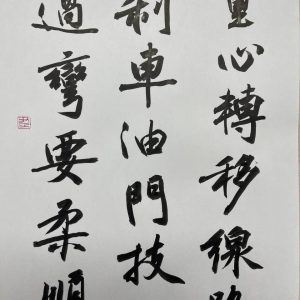 重心轉移線路
制車油門技
過彎要柔順